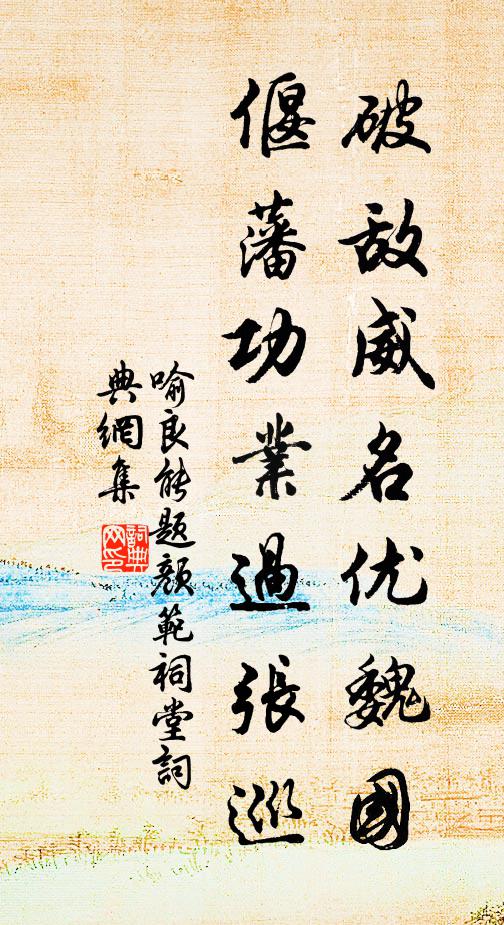 破敌威名优魏國
偃藩功業過張巡
喻良能題顏範祠堂詞
典網集
詞典
网印